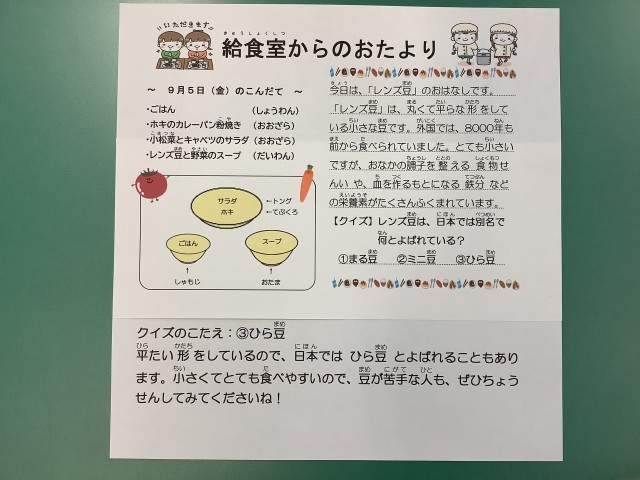 いただきます
給食室からのおたより
～ 9月5日（金）のこんだて ～
・ごはん （しょうわん）
・ホキのカレーパン粉焼き （おおざら）
・小松菜とキャベツのサラダ （おおざら）
・レンズ豆と野菜のスープ （だいわん）
サラダ
ホキ
←トング
←てぶくろ
ごはん
スープ
↑
↑
しゃもじ
おたま
今日は、「レンズ豆」のおはなしです。
「レンズ豆」は、丸くて平らな形をして
いる小さな豆です。外国では、8000年も
前から食べられていました。とても小さい
ですが、おなかの調子を整える食物せ
んいや、血を作るもとになる鉄分など
の栄養素がたくさんふくまれています。
【クイズ】レンズ豆は、日本では別名で
何とよばれている？
①まる豆 ②ミニ豆 ③ひら豆
クイズのこたえ：③ひら豆
平たい形をしているので、日本ではひら豆とよばれることもあり
ます。小さくてとても食べやすいので、豆が苦手な人も、ぜひちょう
せんしてみてくださいね！